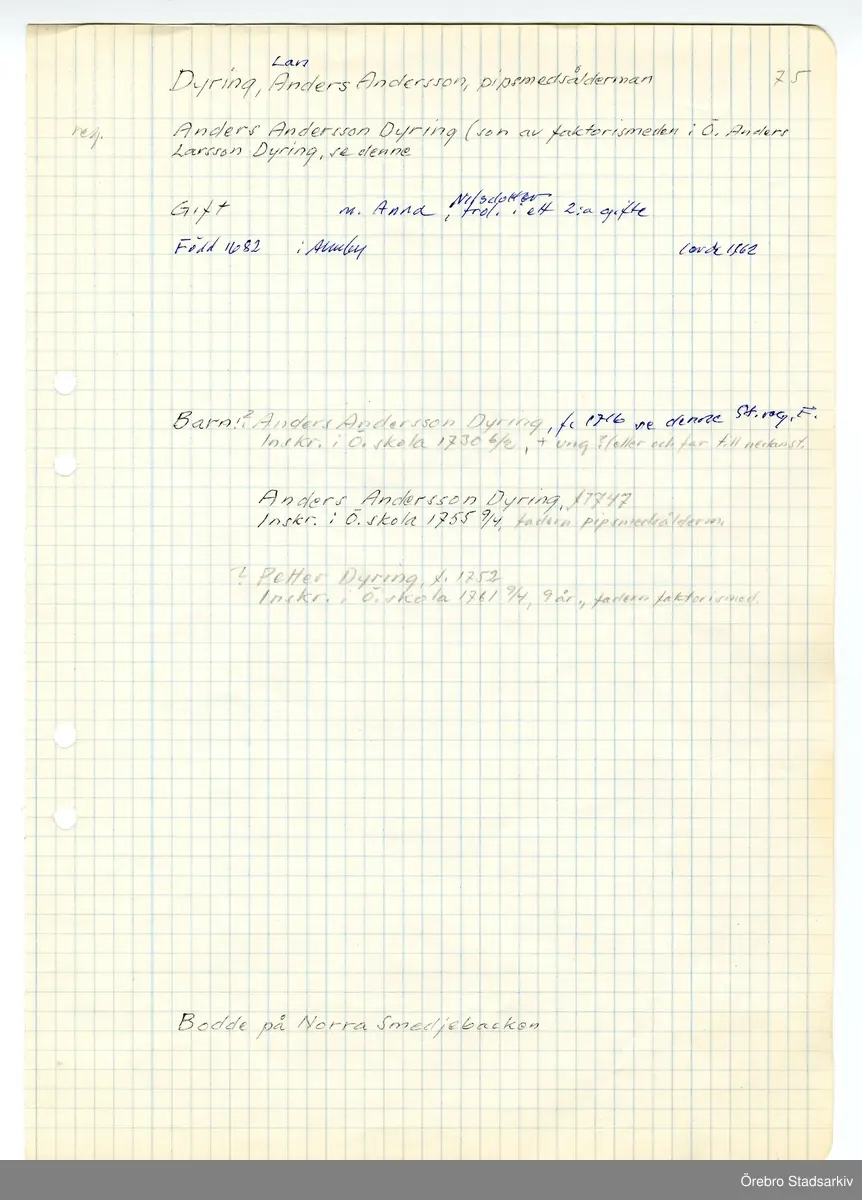 Lars
Dyring, Anders Andersson, pipsmedsålderman 75
reg. Anders Andersson Dyring (son av faktorismeden i Ö. Anders
Larsson Dyring, se denne
Nilsdotter
Gift m. Anna , trol. i ett 2:a gifte
Född 1682 i Almby levde 1762
Barn: ? Anders Andersson Dyring, f. 1716 se denne St. reg. F.
Inskr. i Ö. skola 1730 6/2, + ung ? (eller och far till nedanst.
Anders Andersson Dyring, f 1747
Inskr. i Ö. skola 1755 9/4, fadern pipsmedsålderm.
? Petter Dyring, f. 1752
Inskr. i Ö. skola 1761 9/4, 9 år., fadern faktorismed.
Bodde på Norra Smedjebacken
Örebro Stadsarkiv